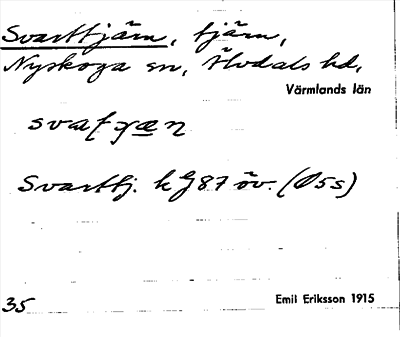 Svarttjärn, tjärn,
Nyskoga sn, Älvdals hd,
Värmlands län
Svarttj. k G87 öv. (Ø5s)
35
Emil Eriksson 1915